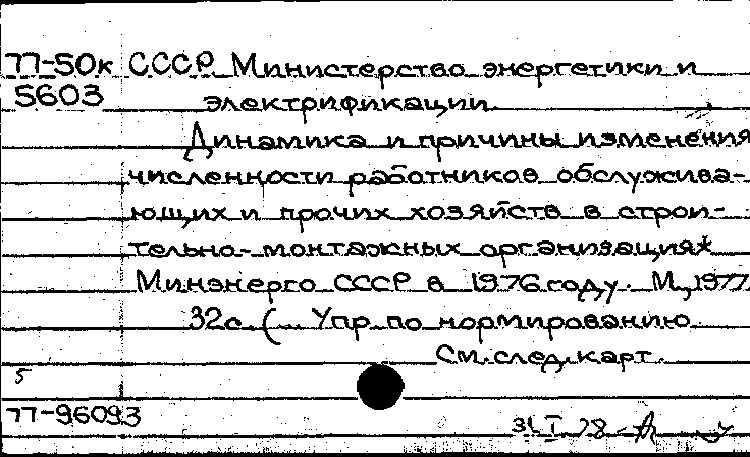 77-50к СССР Министерство энергетики и
5603 электрификации.
Динамика и причины изменения
численности работников обслужива-
ющих и прочих хозяйств в строи-
тельно-монтажных организациях
Минэнерго СССР в 1976 году. М., 1977
32с. (... Упр. по нормированию
См. след. карт.
5
77-96093
31 I 78